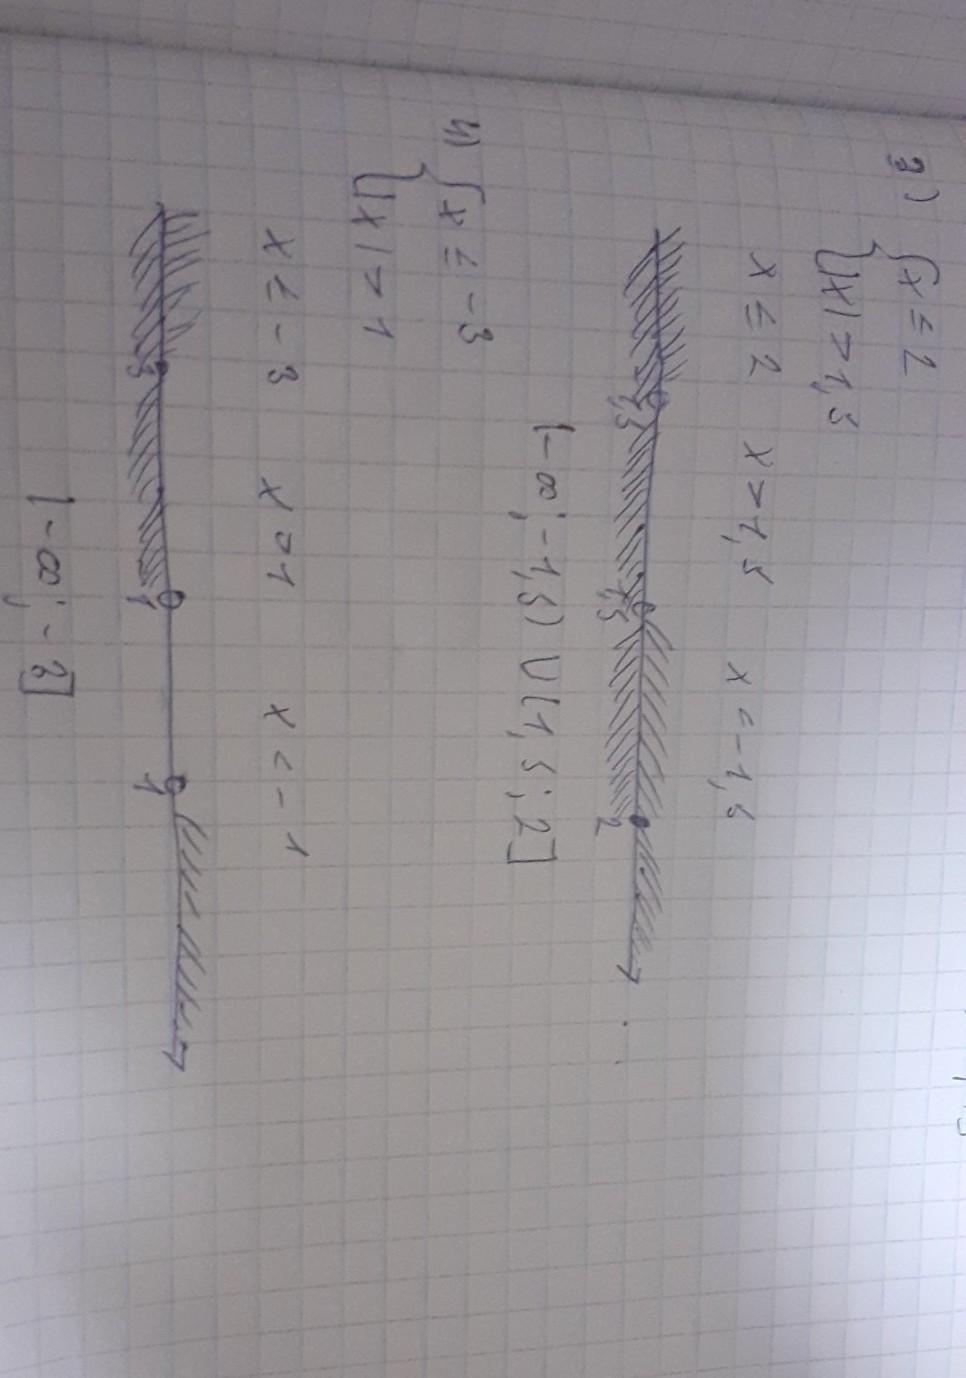 3) { x ≤ 2
{ |x| > 1,5
x ≤ 2 x > 1,5 x < -1,5
-1,5 1,5 2
(-∞; -1,5) U (1,5; 2]
4) { x ≤ -3
{ |x| > 1
x ≤ -3 x > 1 x < -1
-3 -1 1
(-∞; -3]